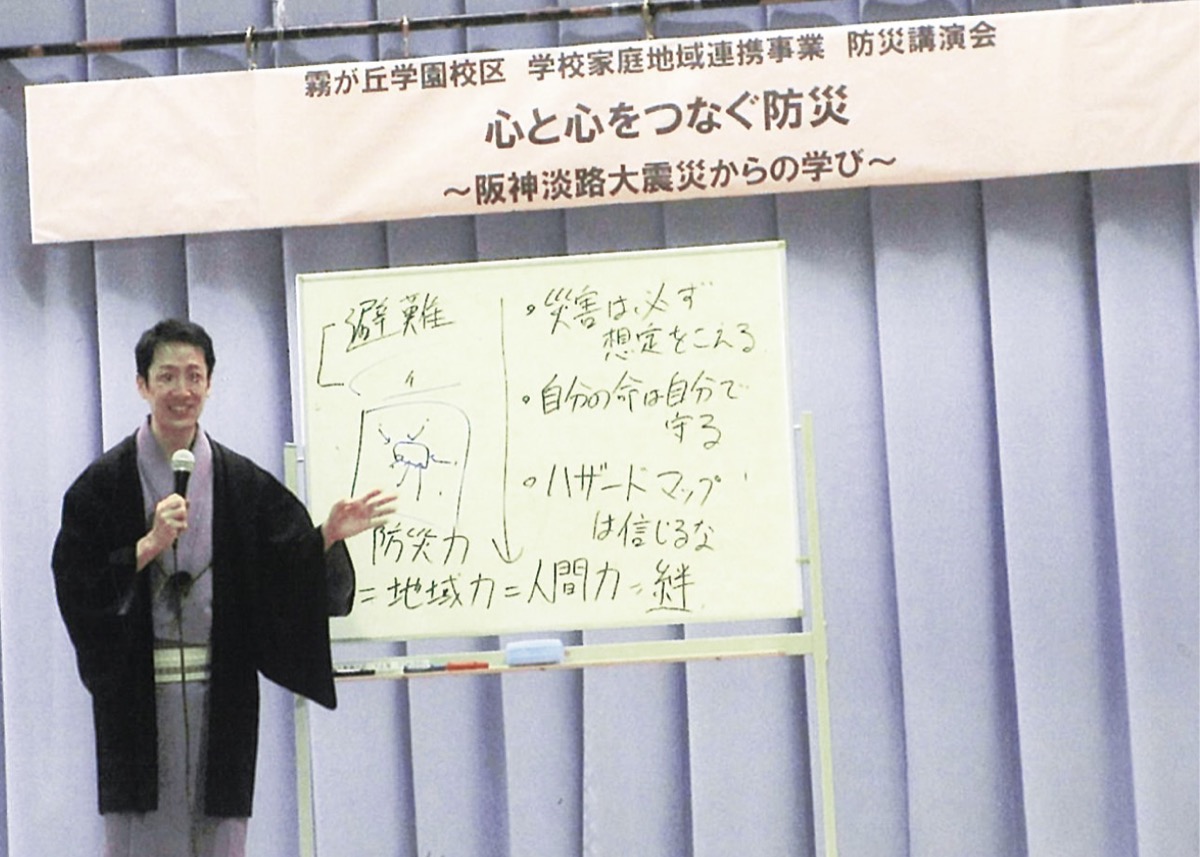 霧が丘学園校区 学校家庭地域連携事業 防災講演会
心と心をつなぐ防災
～阪神淡路大震災からの学び～
避難
・災害は必ず
想定をこえる
・自分の命は自分で
守る
・ハザードマップ
は信じるな
防災力
＝地域力＝人間力＝絆